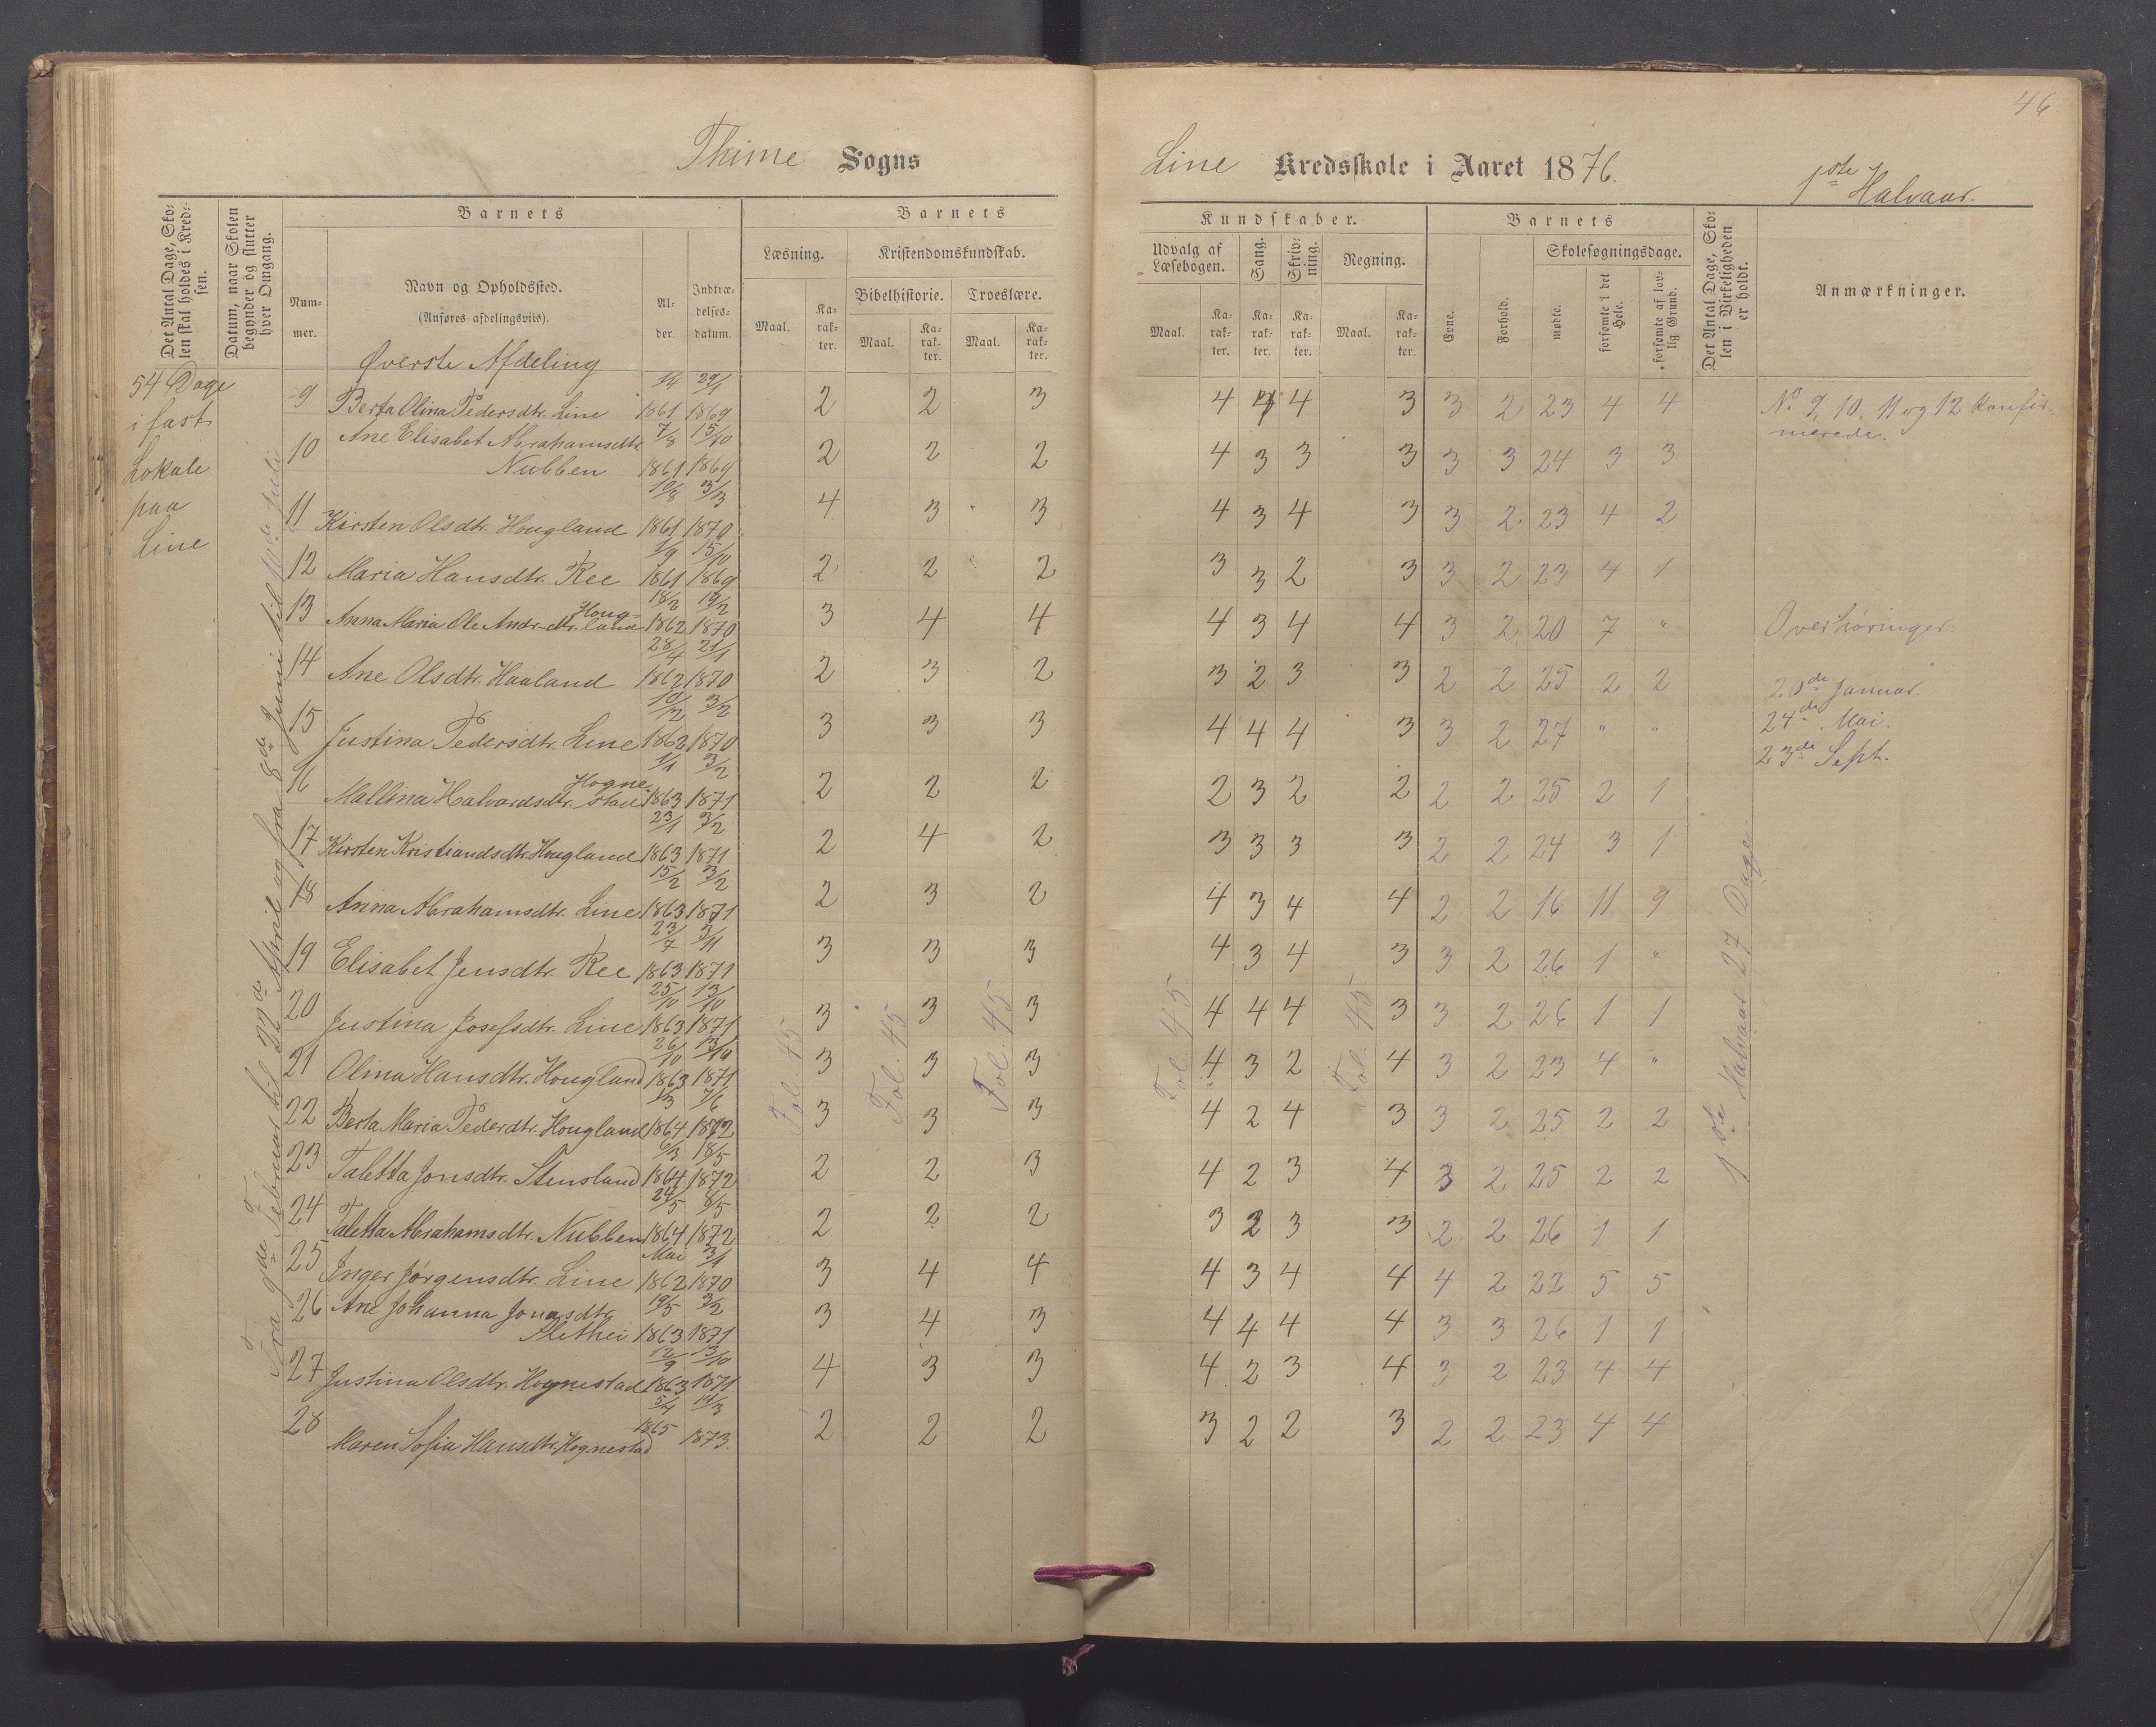 46
Thime Sogns
Line Kredsskole i Aaret 1876.
1ste Halvaar.
Det Antal Dage, Skolen skal holdes i Kredsen.
Datum, naar Skolen begynder og slutter hver Omgang.
Barnets
Nummer.
Navn og Opholdssted.
(Anføres afdelingsviis).
Alder.
Indtrædelsesdatum.
Barnets
Læsning.
Kristendomskundskab.
Bibelhistorie. Troeslære.
Maal. Karakter. Maal. Karakter. Maal. Karakter.
Kundskaber.
Udvalg af Læsebogen. Sang. Skrivning. Regning.
Maal. Karakter. Karakter. Karakter. Maal. Karakter.
Barnets
Evne. Forhold.
Skolesøgningsdage.
mødte. forsømte i det Hele. forsømte af lovlig Grund.
Det Antal Dage, Skolen i Virkeligheden er holdt.
Anmærkninger.
Øverste Afdeling
54 Dage
i fast
Lokale
paa
Line
Fra 9de Februar til 22de April og fra 8de Juni til 11te Juli
9 Berta Olina Pedersdtr. Line 1861 29/1 1869 2 2 3 4 4 4 3 3 2 23 4 4
10 Ane Elisabet Abrahamsdtr. Nubben 7/8 1861 15/10 1869 2 2 2 4 3 3 3 3 3 24 3 3
11 Kirsten Olsdtr. Hougland 10/8 1861 3/3 1870 4 3 3 4 3 4 3 3 2 23 4 2
12 Maria Hansdtr. Ree 1/9 1861 15/10 1869 2 2 2 3 3 2 3 3 2 23 4 1
13 Anna Maria Ole Andr. dtr. Hougland 18/2 1862 19/2 1870 3 4 4 4 3 4 4 3 2 20 7 "
14 Ane Olsdtr. Haaland 28/4 1862 21/1 1870 2 3 2 3 2 3 3 2 2 25 2 2
15 Justina Pedersdtr. Line 10/12 1862 3/2 1870 3 3 3 4 4 4 3 3 2 27 " "
16 Mallina Halvardsdtr. Hognestad 1/1 1863 3/2 1871 2 2 2 2 3 2 2 2 2 25 2 1
17 Kirsten Kristiandsdtr. Hougland 23/1 1863 3/2 1871 2 4 2 3 3 3 3 2 2 24 3 1
18 Anna Abrahamsdtr. Line 15/2 1863 3/2 1871 2 3 2 4 3 4 4 2 2 16 11 9
19 Elisabet Jensdtr. Ree 23/7 1863 3/11 1871 3 3 3 4 3 4 3 3 2 26 1 "
20 Justina Josefsdtr. Line 25/10 1863 13/10 1871 3 3 3 4 4 4 3 3 2 26 1 1
21 Olina Hansdtr. Hougland 26/10 1863 13/10 1871 3 3 3 4 3 2 4 3 2 23 4 "
22 Berta Maria Pederdtr. Hougland 1864 7/6 1872 3 3 3 4 2 4 3 3 2 25 2 2
23 Taletta Jonsdtr. Stensland 6/3 1864 18/5 1872 2 2 3 4 2 3 4 3 2 25 2 2
24 Taletta Abrahamsdtr. Nubben 24/5 1864 8/5 1872 2 2 2 3 2 3 3 2 2 26 1 1
25 Inger Jørgensdtr. Line Mai 1862 3/1 1870 3 4 4 4 3 4 4 4 2 22 5 5
26 Ane Johanna Jonasdtr. Slethei 19/5 1863 3/2 1871 3 4 3 4 4 4 4 3 3 26 1 1
27 Justina Olsdtr. Hognestad 12/9 1863 13/10 1871 4 3 3 4 2 3 4 3 2 23 4 4
28 Maren Sofia Hansdtr. Hognestad 5/4 1865 14/3 1873. 2 2 2 3 2 2 3 2 2 23 4 4
Fol. 45
Fol. 45
Fol. 45
Fol. 45
Fol. 45
1ste Halvaar 27 Dage.
No 9, 10, 11 og 12 konfirmerede.
Overhøringer.
20de Januar.
24de Mai.
23de Sept.